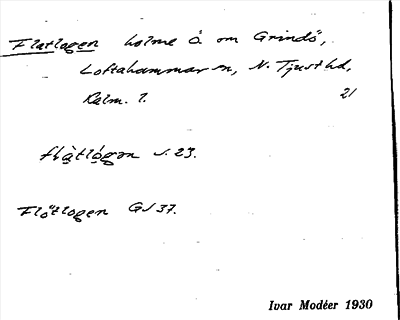 Flatlagen holme Ö om Grindö,
Loftahammar sn, N. Tjust hd,
Kalm. l. 21
flàtlógən s. 23.
Flötlogen GS 37.
Ivar Modéer 1930